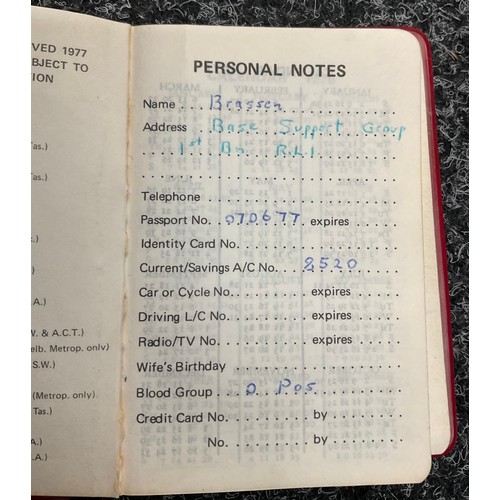 VED 1977
BJECT TO
ION
Tas.)
Tas.)
.)
A.)
W. & A.C.T.)
elb. Metrop. only)
S.W.)
(Metrop. only)
Tas.)
A.)
.A.)
PERSONAL NOTES
Name Brassen
Address Base Support Group
1st Bn RLI
Telephone
Passport No. 070677 expires
Identity Card No.
Current/Savings A/C No. 8520
Car or Cycle No. expires
Driving L/C No. expires
Radio/TV No. expires
Wife's Birthday
Blood Group O Pos
Credit Card No. by
No. by